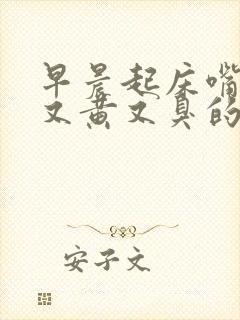 早晨起床嘴
又黄又臭的
安子文